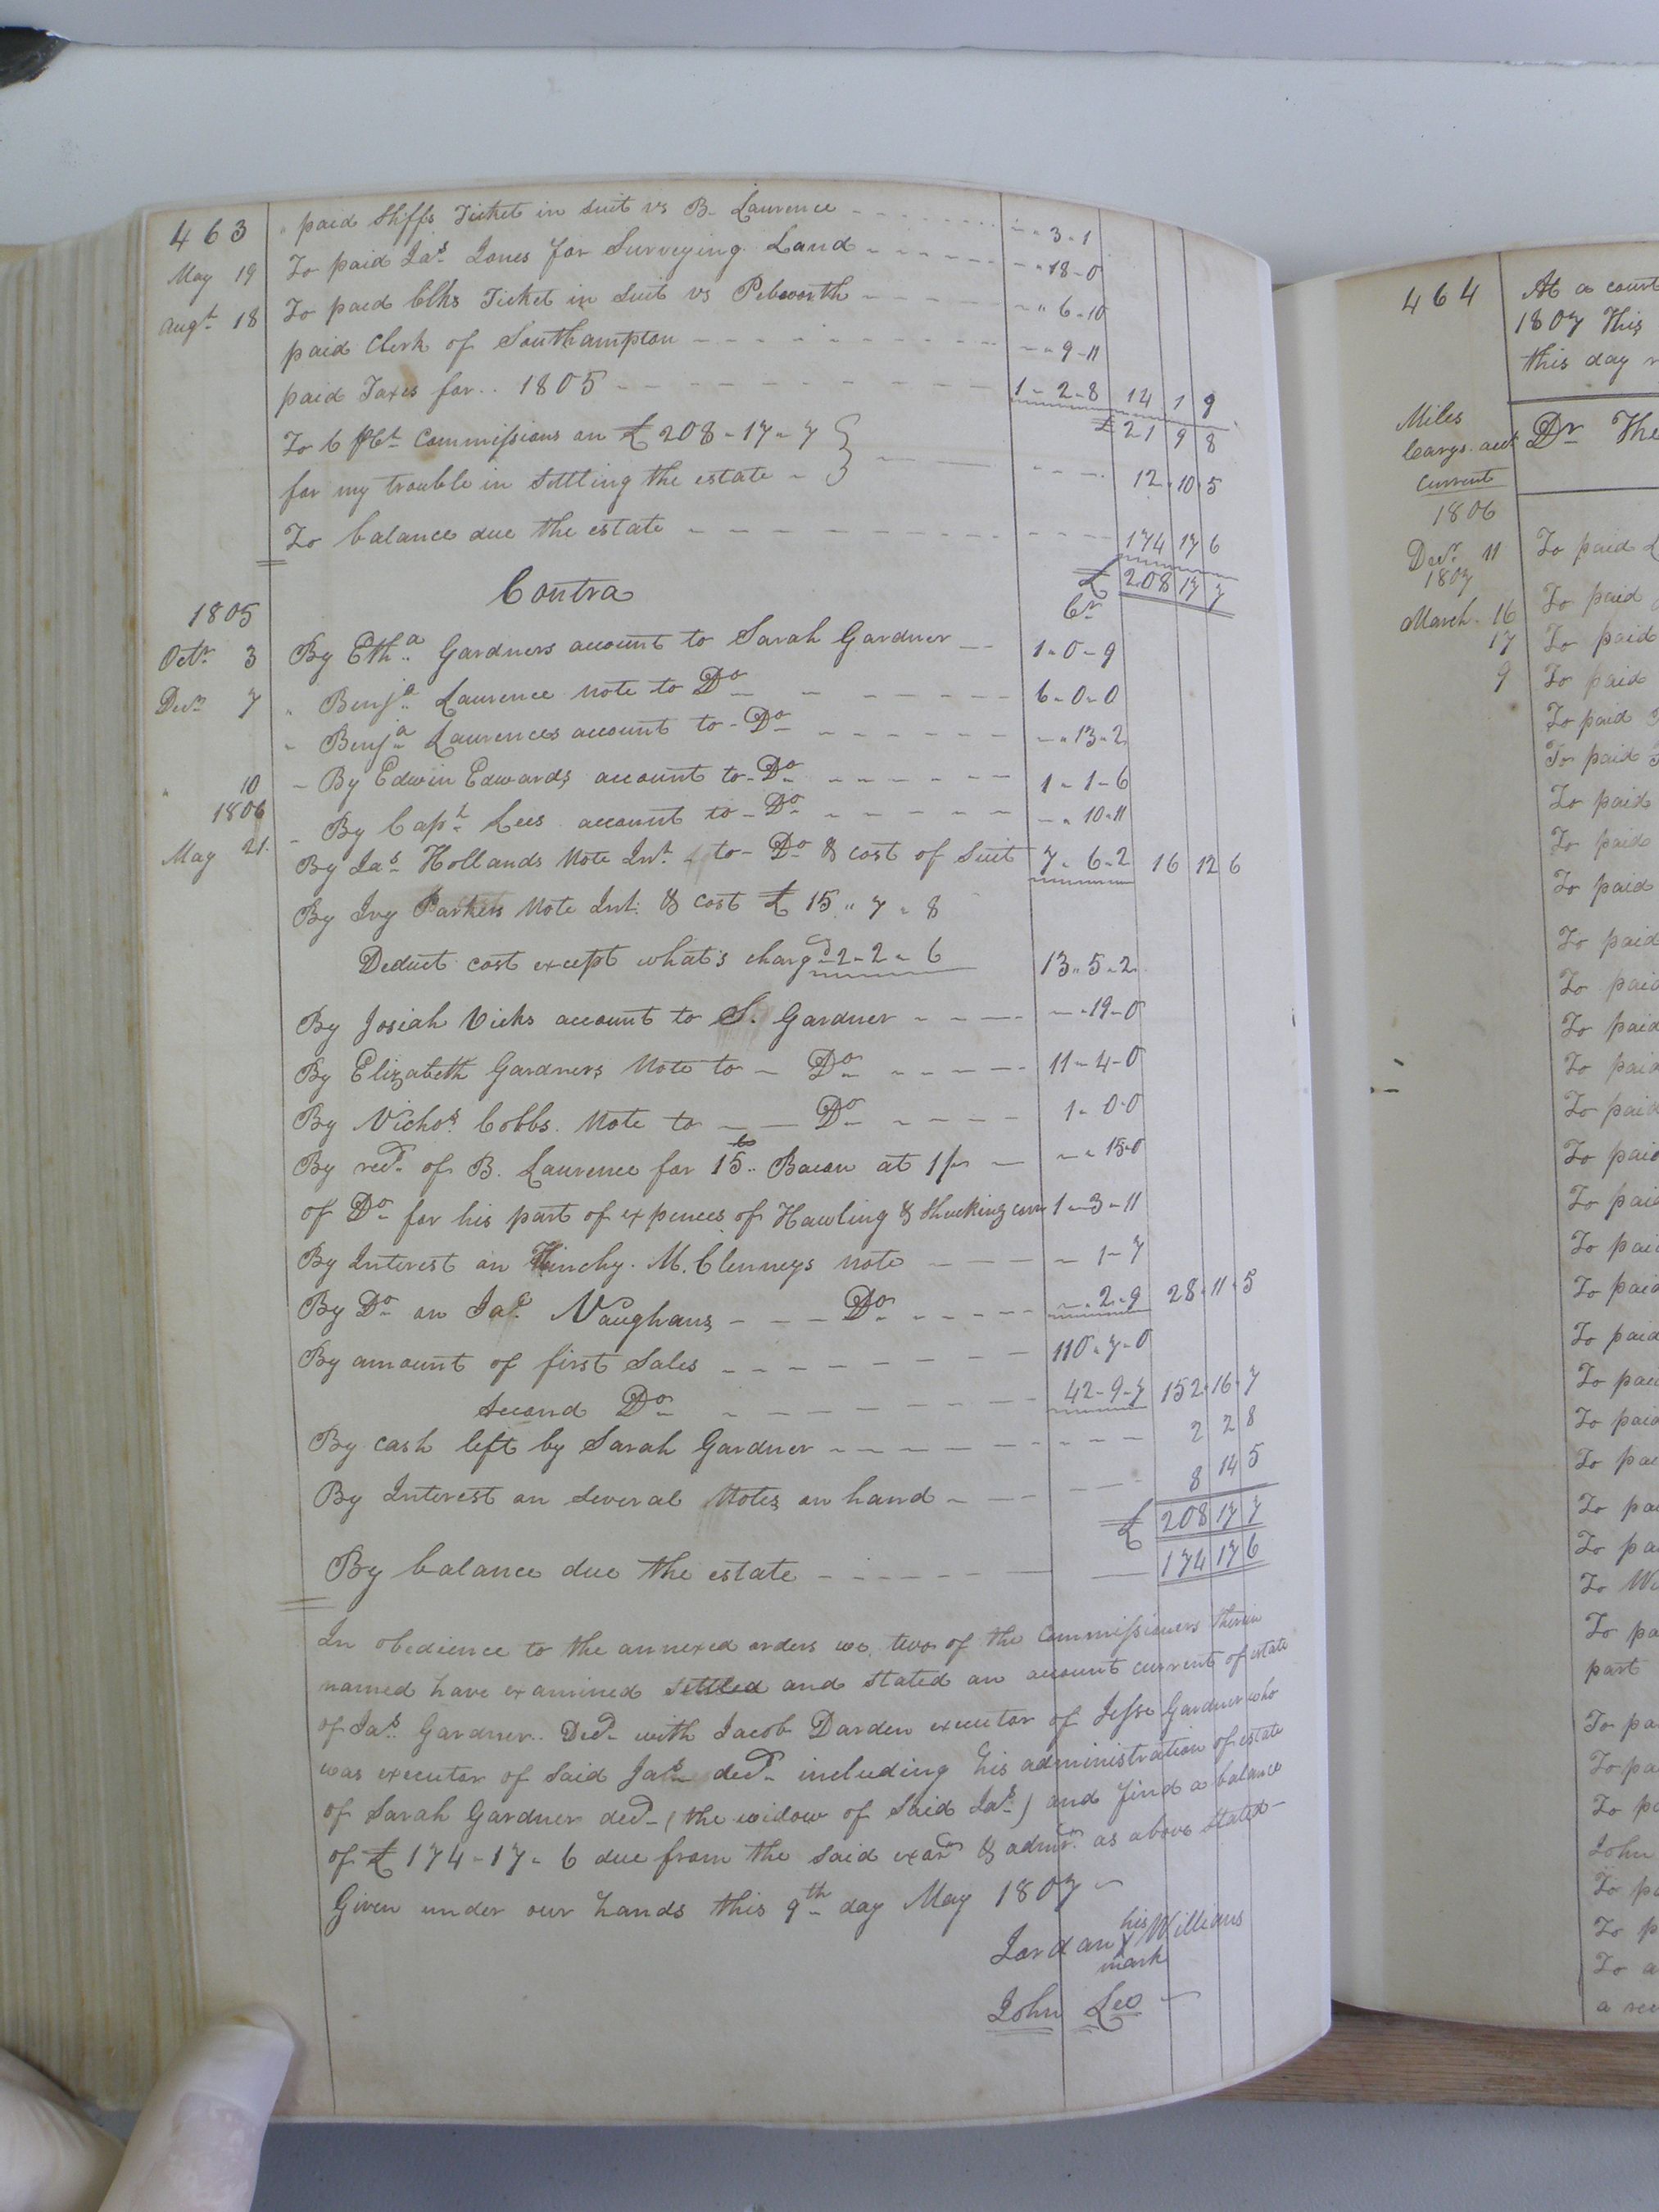 463 " paid Shffs Ticket in suit vs B. Laurence - - - - - " 3 " 1
May 19 To paid Jas. Jones for Surveying Land - - - - - " 18 - 0
Augt. 18 To paid Clks Ticket in Suit vs Pebworth - - - - " 6 - 10
paid Clerk of Southampton - - - - - - - - " 9 - 11
paid Taxes for .. 1805 - - - - - - - 1 - 2 - 8 14 1 9
£ 21 9 8
To 6 pCt. Commissions on £ 208 - 17 - 7
for my trouble in Settling the estate - - - - 12 " 10 " 5
To balance due the estate - - - - - - - - 174 17 6
£ 208 17 7
Contra Cr.
1805
Octr. 3 By Etha. Gardners account to Sarah Gardner - - 1 - 0 - 9
Decr. 7 " Benja. Laurence note to Do - - - - - 6 - 0 - 0
" Benja. Laurences account to - Do - - - - - - " 13 - 2
" 10 - By Edwin Edwards account to - Do - - - - - 1 - 1 - 6
1806
- By Capt. Lees account to - Do - - - - - " 10 " 11
May 21. By Jas. Hollands Note Int. to - Do & cost of Suit 7 - 6 - 2 16 12 6
By Ivy Parkers Note Int. & cost £ 15 " 7 " 8
Deduct cost except what's chargd - 2 - 2 - 6 13 " 5 - 2
By Josiah Vicks account to S. Gardner - - - - " 19 - 0
By Elizabeth Gardners Note to - Do - - - - 11 - 4 - 0
By Nichos. Cobbs. Note to - - Do - - - - 1 - 0 - 0
By recd. of B. Laurence for 15 lb .. Bacon at 1/ - - " 15 - 0
of Do for his part of expences of Hawling & Shucking corn 1 - 3 - 11
By Interest on Hinchy. M. Clenneys note - - - - 1 - 7
By Do on Jas. Vaughans - - - Do - - - - 2 - 9 28 " 11 " 5
By amount of first Sales - - - - - - - - 110 " 7 - 0
Second Do - - - - - - - 42 - 9 - 7 152 " 16 " 7
By cash left by Sarah Gardner - - - - - - - - - 2 2 8
By Interest on Several Notes on hand - - - - - 8 14 5
£ 208 17 7
By balance due the estate - - - - - - - 174 17 6
In obedience to the annexed orders we, two of the Commissioners therein
named have examined settled and stated an account current of estate
of Jas. Gardner .. Decd. with Jacob Darden executor of Jesse Gardner who
was executor of said Jas. decd. including his administration of estate
of Sarah Gardner decd - (the widow of Said Jas.) and find a balance
of £ 174 - 17 - 6 due from the said exor. & admr. as above stated -
Given under our hands this 9th day May 1807 -
Jordan his X mark Williams
John Lee
464 At a court
1807 This
this day
Miles
Carys. acct Dr The
Current
1806
Decr. 11 To paid
1807
March. 16 To paid
17 To paid
9 To paid
To paid
To paid
To paid
To paid
To paid
To paid
To paid
To paid
To paid
To paid
To paid
To paid
To paid
To paid
To paid
To paid
To paid
To paid
To pa
To pa
To
To pa
part
To pa
To pa
To pa
John
To pa
To p
To a
a